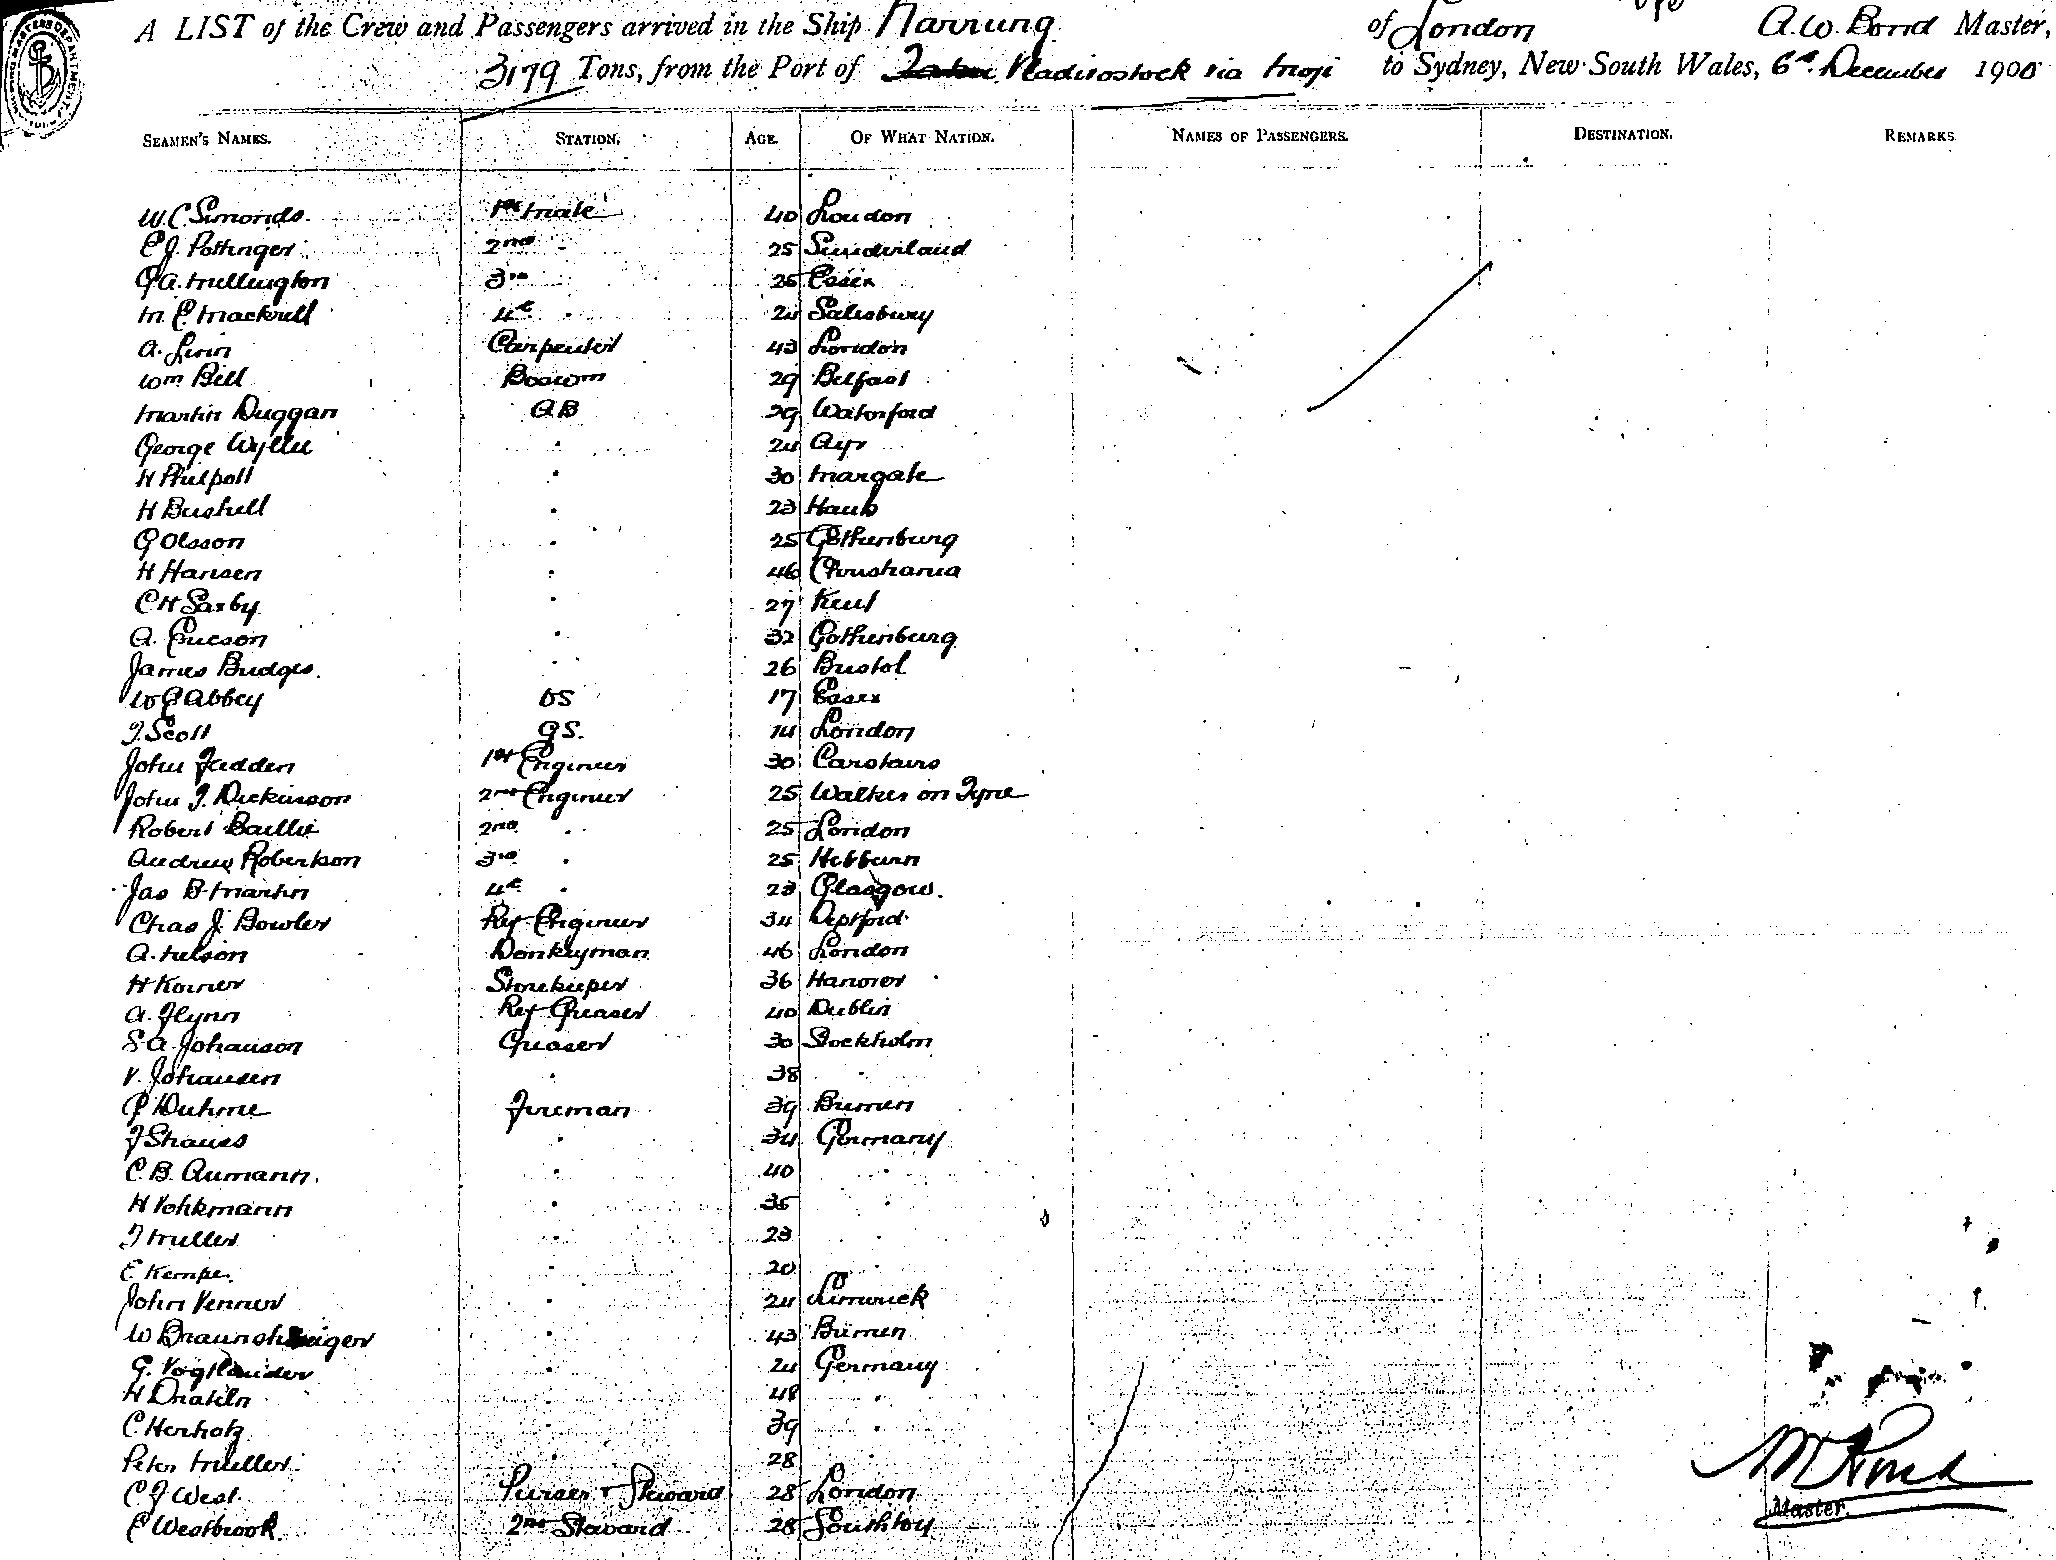 A LIST of the Crew and Passengers arrived in the Ship Narrung of London A.W. Bond Master,
3179 Tons, from the Port of Vladivostock via Moji to Sydney, New South Wales, 6th December 1900
SEAMEN'S NAMES. STATION. AGE. OF WHAT NATION. NAMES OF PASSENGERS. DESTINATION. REMARKS
W.C. Simonds. 1st Mate 40 London
E J. Pottinger 2nd " 25 Sunderland
G A. Mullington 3rd 25 Essex
M. E. Mackrell 4th " 24 Salisbury
A. Carpenter 43 London
Wm Bell Boswn 29 Belfast
Martin Duggan AB 29 Waterford
George Wyllie " 24 Ayr
H Philpott " 30 Margate
H Bushell " 23 Hants
G Olsson " 25 Gothenburg
H Hansen " 46 Christiania
C H Saxby " 27 Kent
A. Ericson " 32 Gothenburg
James Bridges. " 26 Bristol
W E Abbey OS 17 Essex
J. Scott OS. 14 London
John Fadden 1st Engineer 30 Carstairs
John J. Dickinson 2nd Engineer 25 Walker on Tyne
Robert Baillie 2nd " 25 London
Andrew Robertson 3rd " 25 Hebburn
Jas B. Martin 4th " 23 Glasgow.
Chas J. Bowler Ref Engineer 34 Deptford
A. Nelson Donkeyman 46 London
H Korner Storekeeper 36 Hanover
A. Flynn Ref Greaser 40 Dublin
S. A. Johanson Greaser 30 Stockholm
V. Johansen " 38 "
Duhme Fireman 39 Bremen
J Strauss " 34 Germany
C. B. Aumann. " 40 "
H Vohkmann " 35 "
J Muller " 23 "
E Kempe. " 20 "
John Venner " 24 Limerick
W Braunshweiger " 43 Bremen
G. Vogtlander " 24 Germany
H " 48 "
C Herholz " 39 "
Peter Mueller. " 28 "
C J West. Purser & Steward 28 London
E Westbrook. 2nd Steward 28 Southton
Master.